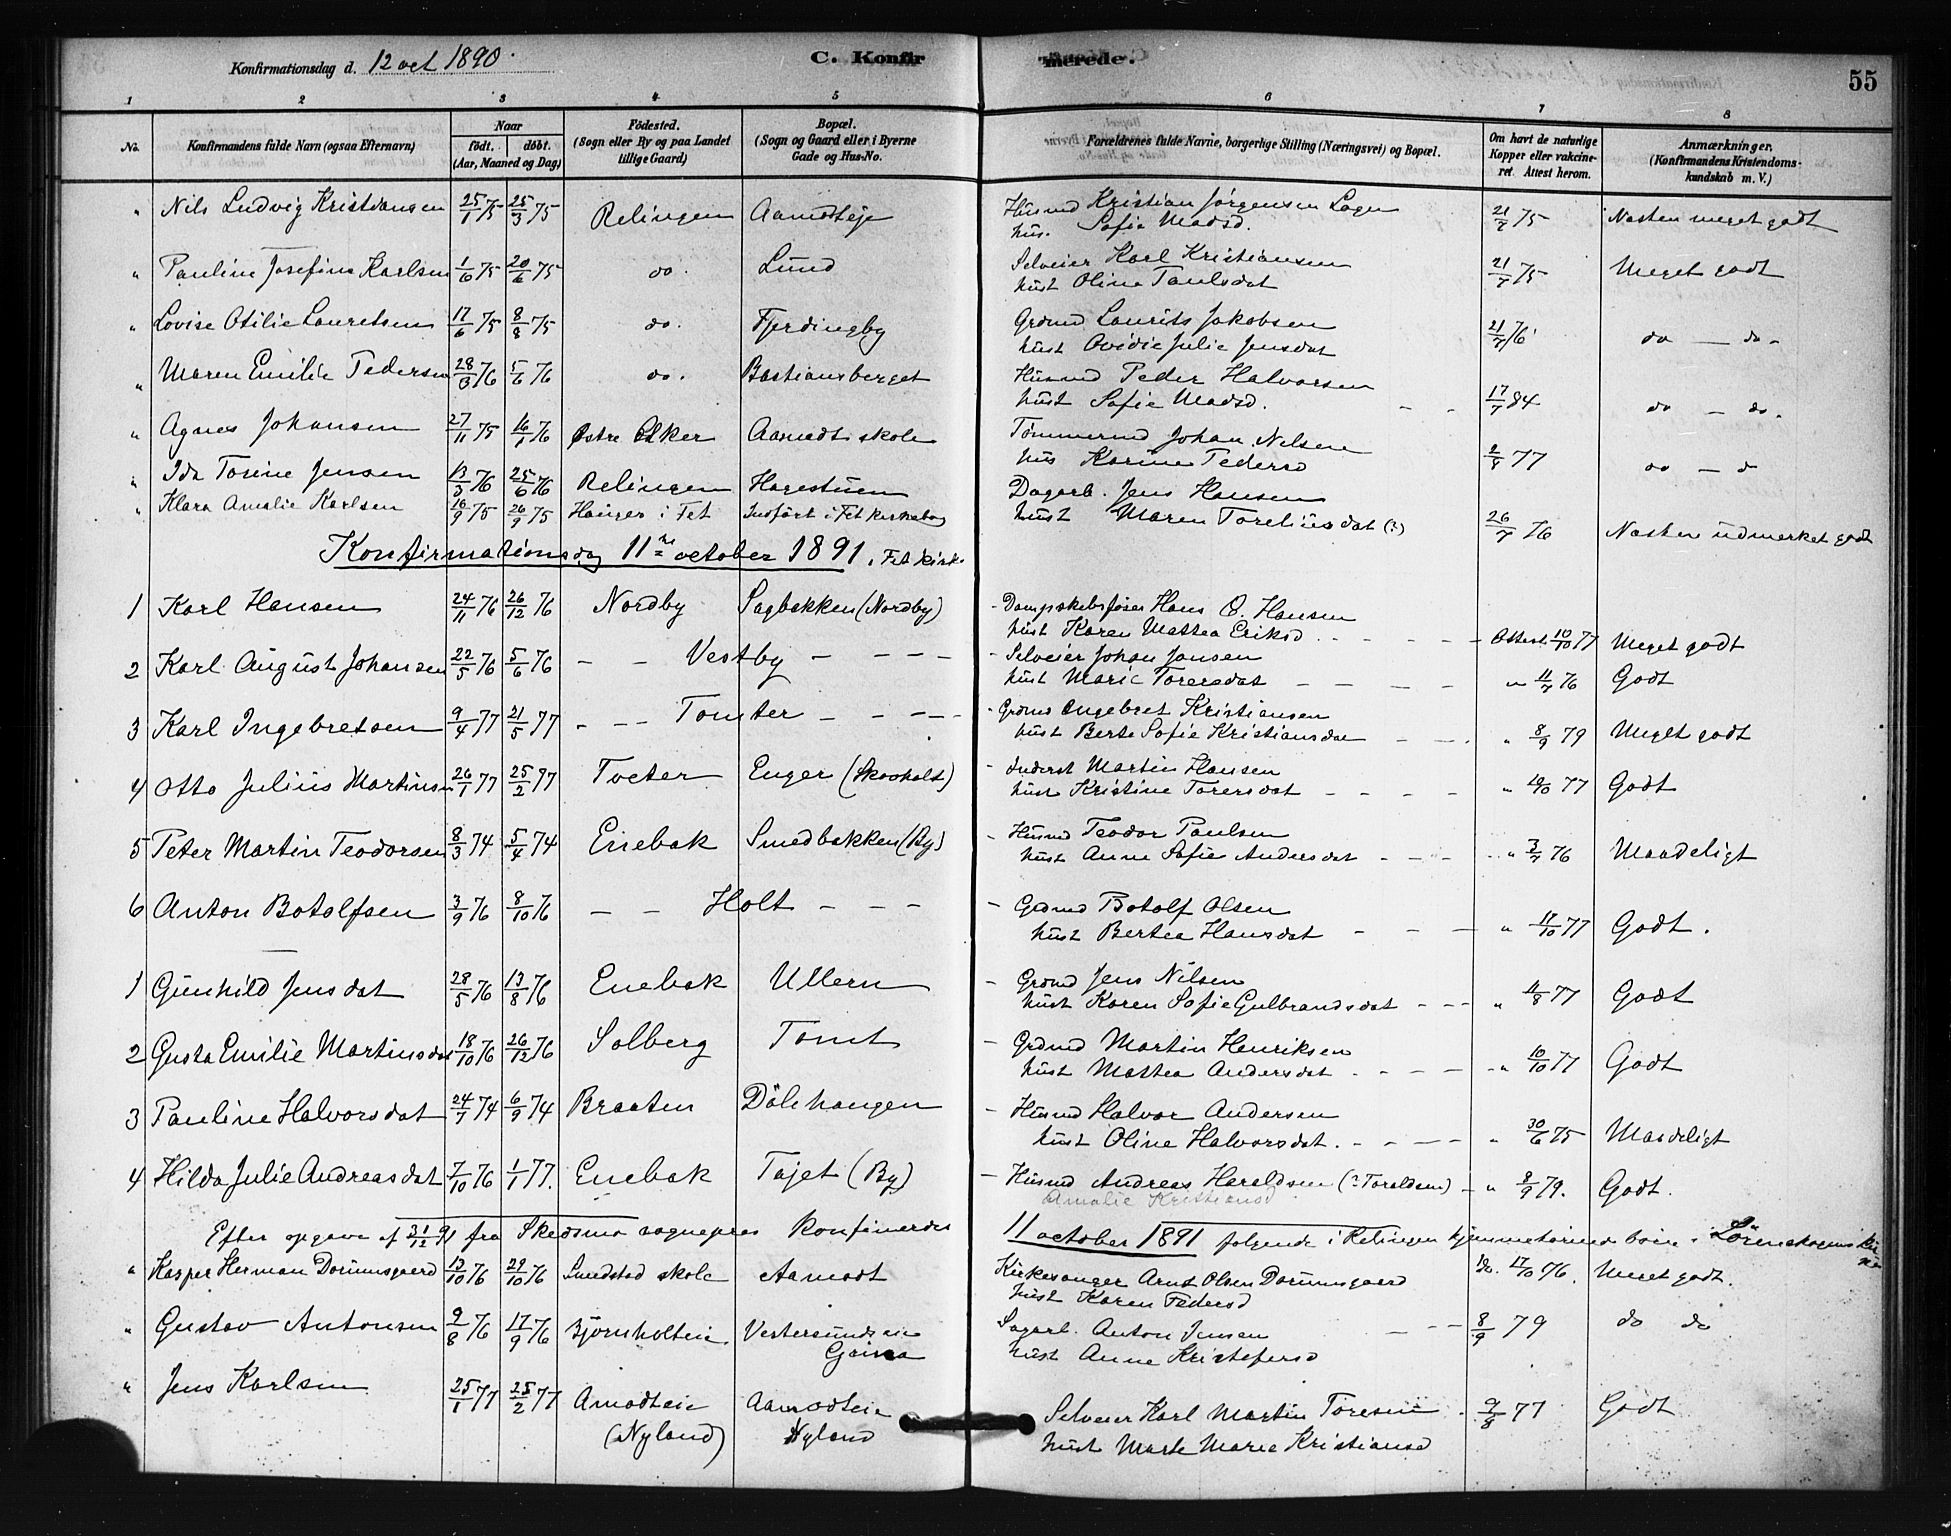 Konfirmationsdag d. 12 oct 1890.
C. Konfirmerede.
55
1 2 3 4 5 6 7 8
No.
Konfirmandens fulde Navn (ogsaa Efternavn)
Naar
født. døbt.
(Aar, Maaned og Dag)
Fødested.
(Sogn eller By og paa Landet
tillige Gaard)
Bopæl.
(Sogn og Gaard eller i Byerne
Gade og Hus-No.
Forældrenes fulde Navne, borgerlige Stilling (Næringsvei) og Bopæl.
Om havt de naturlige
Kopper eller vakcine-
ret. Attest herom.
Anmærkninger.
(Konfirmandens Kristendoms-
kundskab m. V.)
" Nils Ludvig Kristiansen 25/1 75 25/3 75 Relingen Aamodteje Husmd Kristian Jørgensen 21/7 75 Næsten meget godt
hus. Sofie Madsd.
" Pauline Josefine Karlsen 1/6 75 20/6 75 do. Lund Selveier Karl Kristiansen 21/7 75 Meget godt
hust Oline Paulsdat
" Lovise Otilie Lauritsen 17/6 75 8/8 75 do. Fjerdingby Grdmd Laurits Jakobsen 21/7 76 do — do -
hust Ovidie Julie Jensdat
" Maren Emilie Pedersen 28/3 76 5/6 76 do. Bastiansberget Husmd Peder Halvorsen 17/7 84 do — do.
hust Sofie Madsd.
" Agnes Johansen 27/11 75 16/1 76 Østre Aker Aamodt skole Tømmermd Johan Nilsen 2/8 77 do — d
hus Karine Pedersd
" Ida Torine Jensen 13/3 76 25/6 76 Relingen Hagestuen Dagarb. Jens Hansen 26/7 76 Næsten udmerket godt
hust Maren Toreliusdat (?)
" Klara Amalie Karlsen 18/9 75 26/9 75 Hauger i Fet Indført i Fet kirkebog
Konfirmationsdag 11te october 1891. Fet kirke
1 Karl Hansen 24/11 76 26/12 76 Nordby Sagbakken (Nordby) - Dampskibsfører Hans O. Hansen
hust Karen Mathea Eriksd - - - - Attest 10/10 77 Meget godt
2 Karl August Johansen 22/5 76 5/6 76 - - Vestby - - - - - Selveier Johan Jansen
hust Marie Torersdat — — — — " 11/7 76 Godt
3 Karl Ingebretsen 9/4 77 21/5 77 - - - Tomter - - - - - Grdmd Ingebret Kristiansen
hust Berte Sofie Kristiansdat — — - " 8/9 79 Meget godt
4 Otto Julius Martinsen 26/1 77 25/2 77 Tveter Enger (Skovholt) - Inderst Martin Hansen
hust Kristine Torersdat - - - - " 10/10 77 Godt
5 Peter Martin Teodorsen 8/3 74 5/4 74 Enebak Smedbakken (By) - Husmd Teodor Paulsen
hust Anne Sofie Andersdat - - - - " 3/7 76 Maadeligt
6 Anton Botolfsen 3/9 76 8/10 76 — — Holt - - - - Grdmd Botolf Olsen
hust Bertea Hansdat - - - " 17/10 77 Godt.
1 Gunhild Jensdat 28/5 76 13/8 76 Enebak Ullern - Grdmd Jens Nilsen
hust Karen Sofie Gulbrandsdat - - - " 11/8 77 Godt
2 Gusta Emilie Martinsdat 18/10 76 26/12 76 Solberg Tomt - Grdmd Martin Henriksen
hust Mathea Andersdat - - - - " 10/10 77 Godt
3 Pauline Halvorsdat 24/7 74 6/9 74 Braaten Dølehaugen - Husmd Halvor Andersen
hust Oline Halvorsdat. - - - - " 30/6 75 Maadeligt
4 Hilda Julie Andreasdat 7/10 76 1/1 77. Enebak Tajet (By) - Husmd Andreas Hereldsen (? Toreldsen) - " 8/9 79. Godt.
Amalie Kristiansd
Efter opgave af 31/12 91 fra Skedsmo sognepres konfirmerdes 11 october 1891 følgende i Relingen hjemmehørende børn i Lørenskogens kirke
" Kasper Herman Dorumsgaard 13/10 76 29/10 76 Smedstad skole Aamodt Kirkesanger Arnt Olsen Dorumsgaard do. 17/10 76. Meget godt.
hust Karen Pedersd
" Gustav Antonsen 9/8 76 17/9 76 Bjørnholteie Vestersundseie Sagarb. Anton Jensen - - - 8/9 79 do do
hust Anne Kristofersd
" Jens Karlsen 25/1 77 25/2 77 Amodteie Aamodteie Selveier Karl Martin Toresen . 9/8 77 Godt
(Nyland) Nyland hust Marte Marie Kristiansd